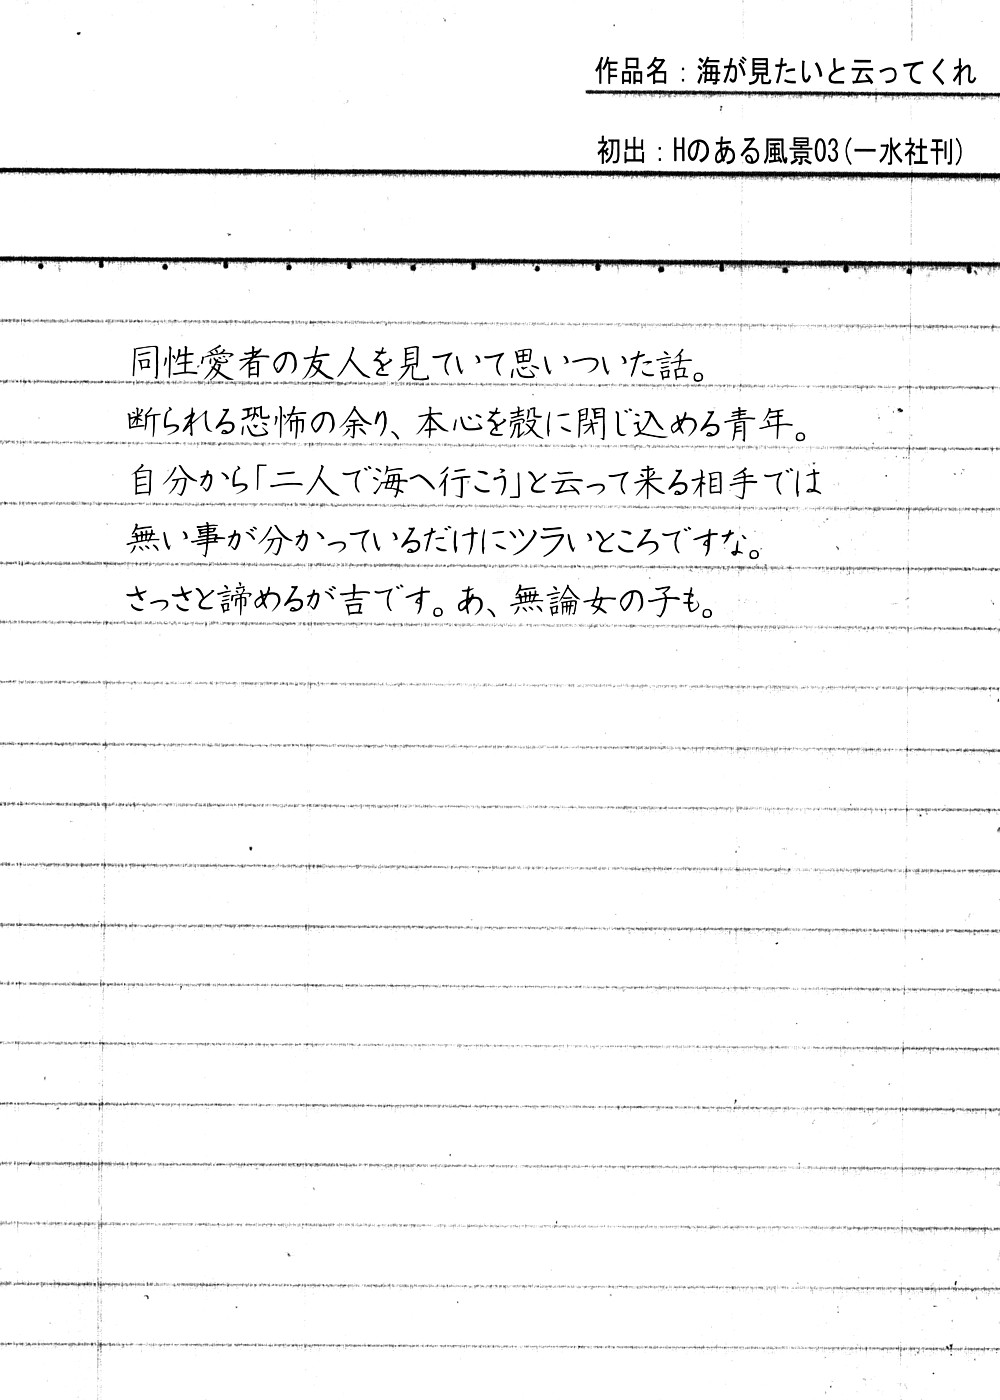 作品名：海が見たいと云ってくれ
初出：Hのある風景03(一水社刊)
同性愛者の友人を見ていて思いついた話。
断られる恐怖の余り、本心を殻に閉じ込める青年。
自分から「二人で海へ行こう」と云って来る相手では
無い事が分かっているだけにツラいところですな。
さっさと諦めるが吉です。あ、無論女の子も。